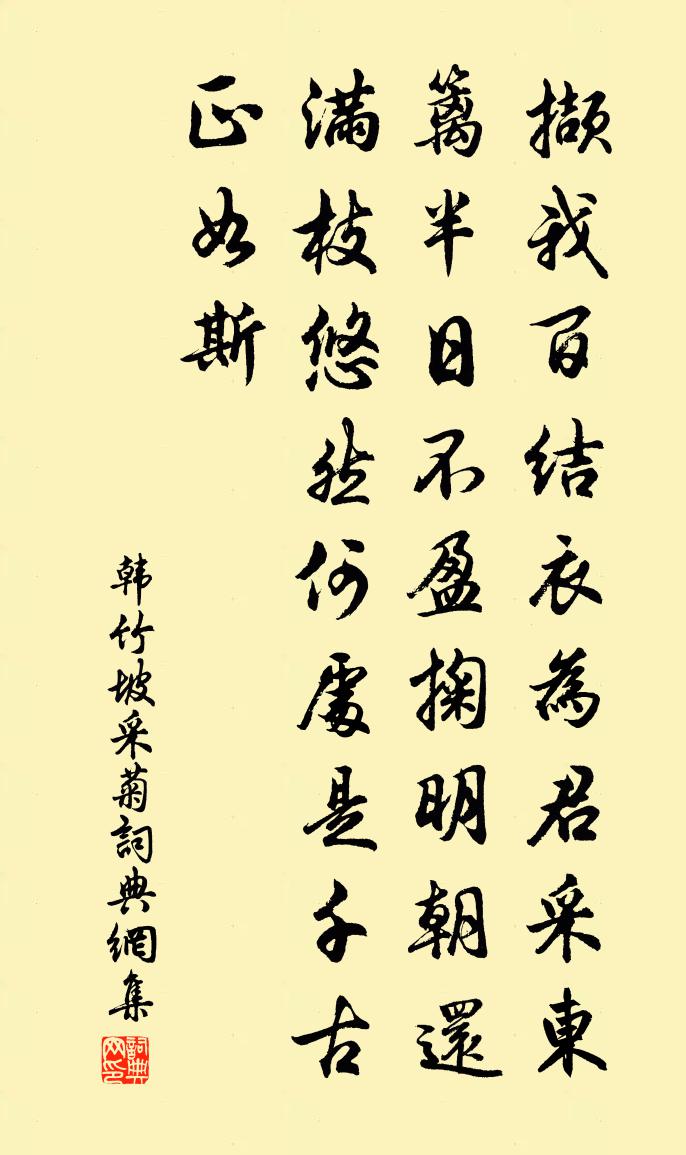 擷我百结衣為君采東
籬半日不盈掬明朝還
滿枝悠然何處是千古
正如斯
韩竹坡采菊詞典網集
詞典网印